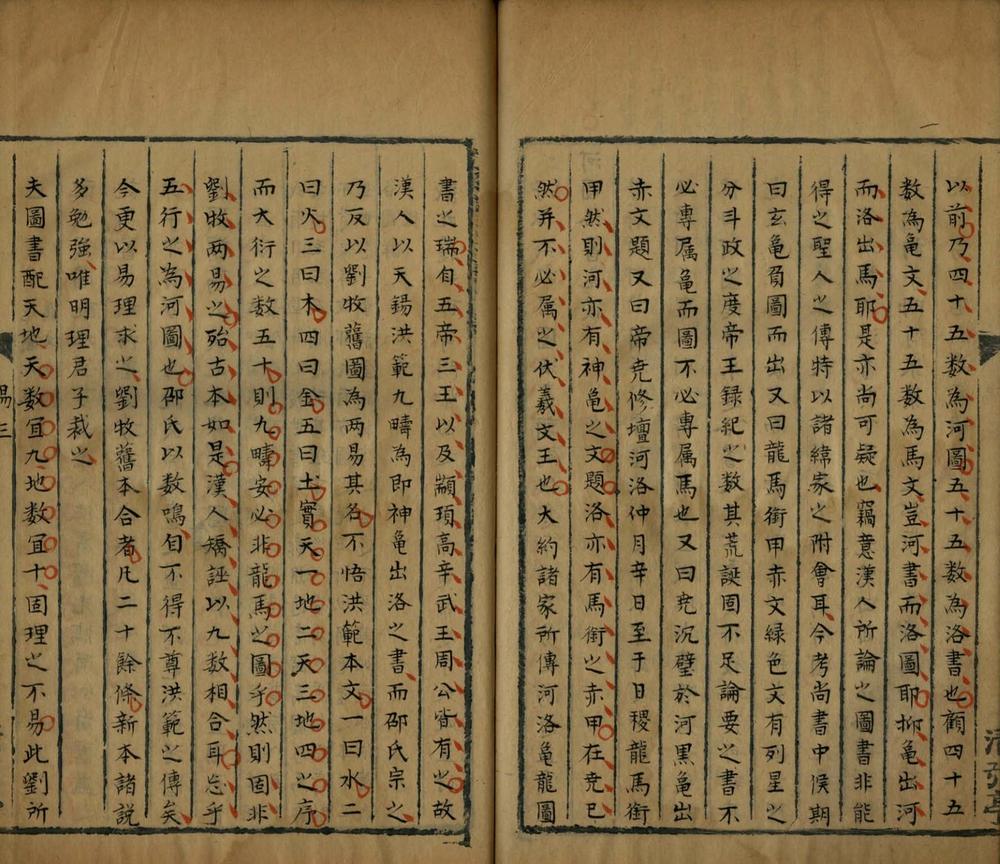 以前乃四十五數為河圖五十五數為洛書也顧四十五
数為亀文五十五数為馬文豈河書而洛圖耶抑亀出河
而洛出馬耶是亦尚可疑也竊意漢人所論之圖書非能
得之聖人之傳特以諸緯家之附會耳今考尚書中候期
曰玄亀負圖而出又曰龍馬銜甲赤文緑色文有列星之
分斗政之度帝王録紀之数其荒誕固不足論要之書不
必專属亀而圖不必專属馬也又曰尭沉璧於河黒亀出
赤文題又曰帝尭修壇河洛仲月辛日至于日稷龍馬銜
甲然則河亦有神亀之文題洛亦有馬銜之赤甲在尭已
然并不必属之伏羲文王也大約諸家所傳河洛亀龍圖
書之瑞自五帝三王以及顓頊高辛武王周公皆有之故
漢人以天錫洪範九疇為即神亀出洛之書而邵氏宗之
乃反以劉牧舊圖為两易其名不悟洪範本文一曰水二
曰火三曰木四曰金五曰土實天一地二天三地四之序
而大衍之数五十則九疇安必非龍馬之圖乎然則固非
劉牧两易之殆古本如是漢人矯誣以九数相合耳忘乎
五行之為河圖也邵氏以数鳴自不得不尊洪範之傳矣
今更以易理求之劉牧舊本合者凡二十餘條新本諸説
多勉強唯明理君子裁之
夫圖書配天地天数宜九地数宜十固理之不易此劉所
易三